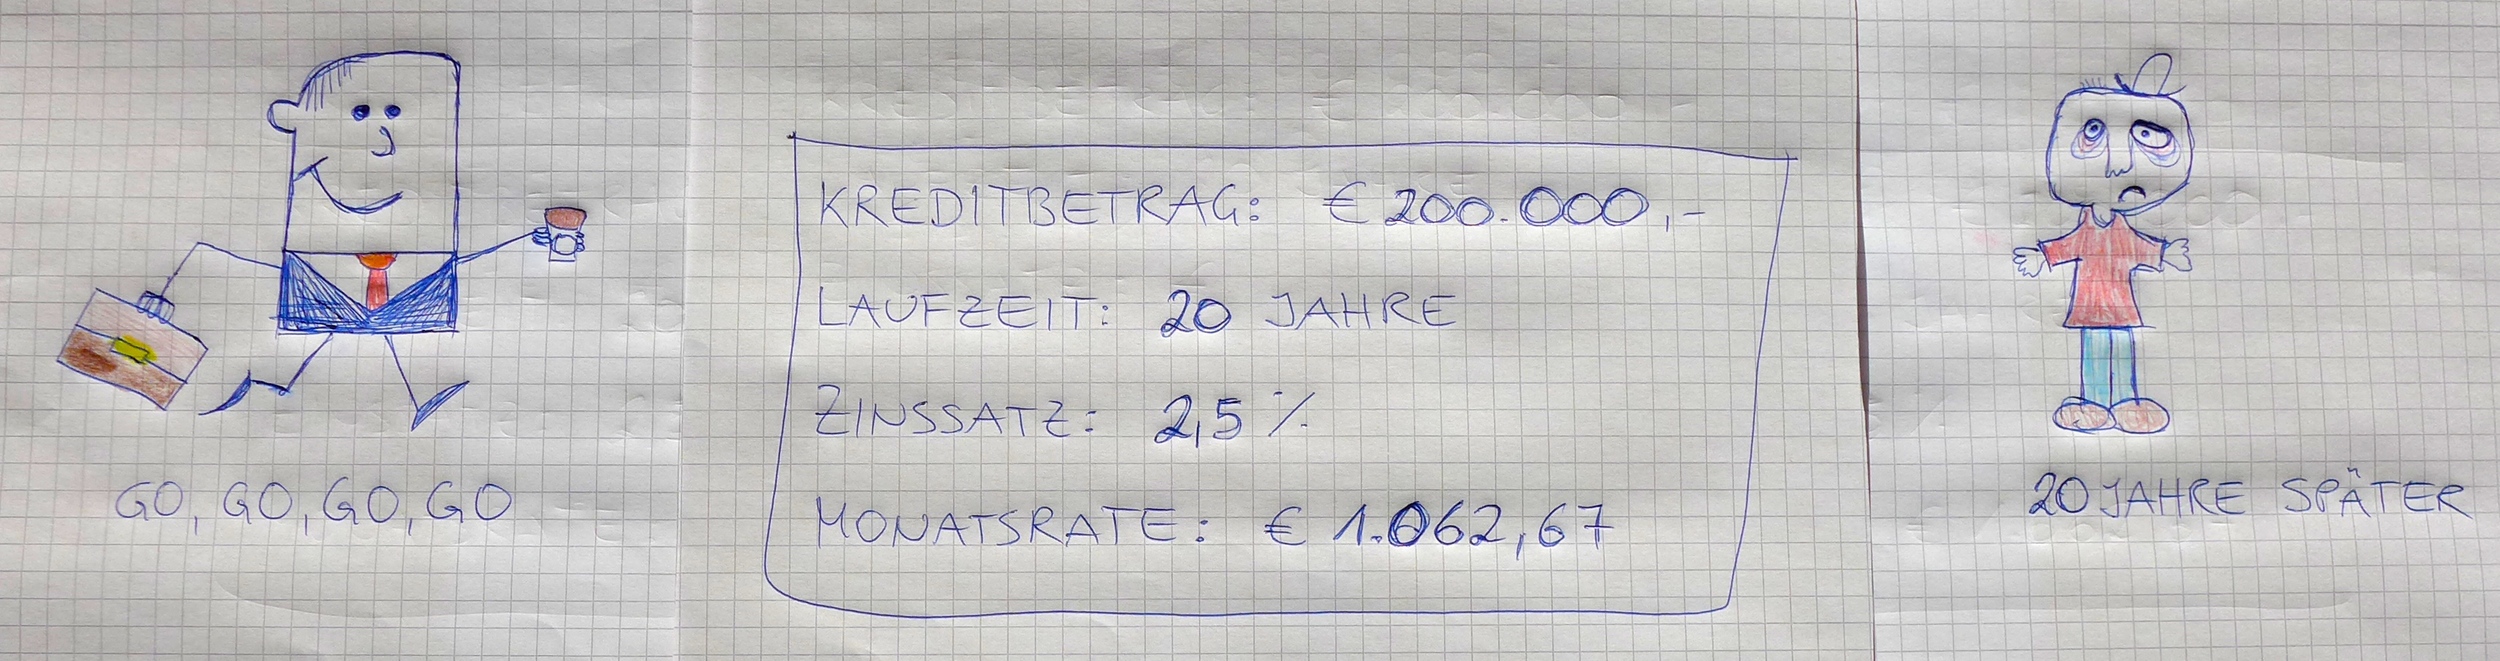 GO, GO, GO, GO
KREDITBETRAG: € 200.000,-
LAUFZEIT: 20 JAHRE
ZINSSATZ: 2,5 %
MONATSRATE: € 1.062,67
20 JAHRE SPÄTER